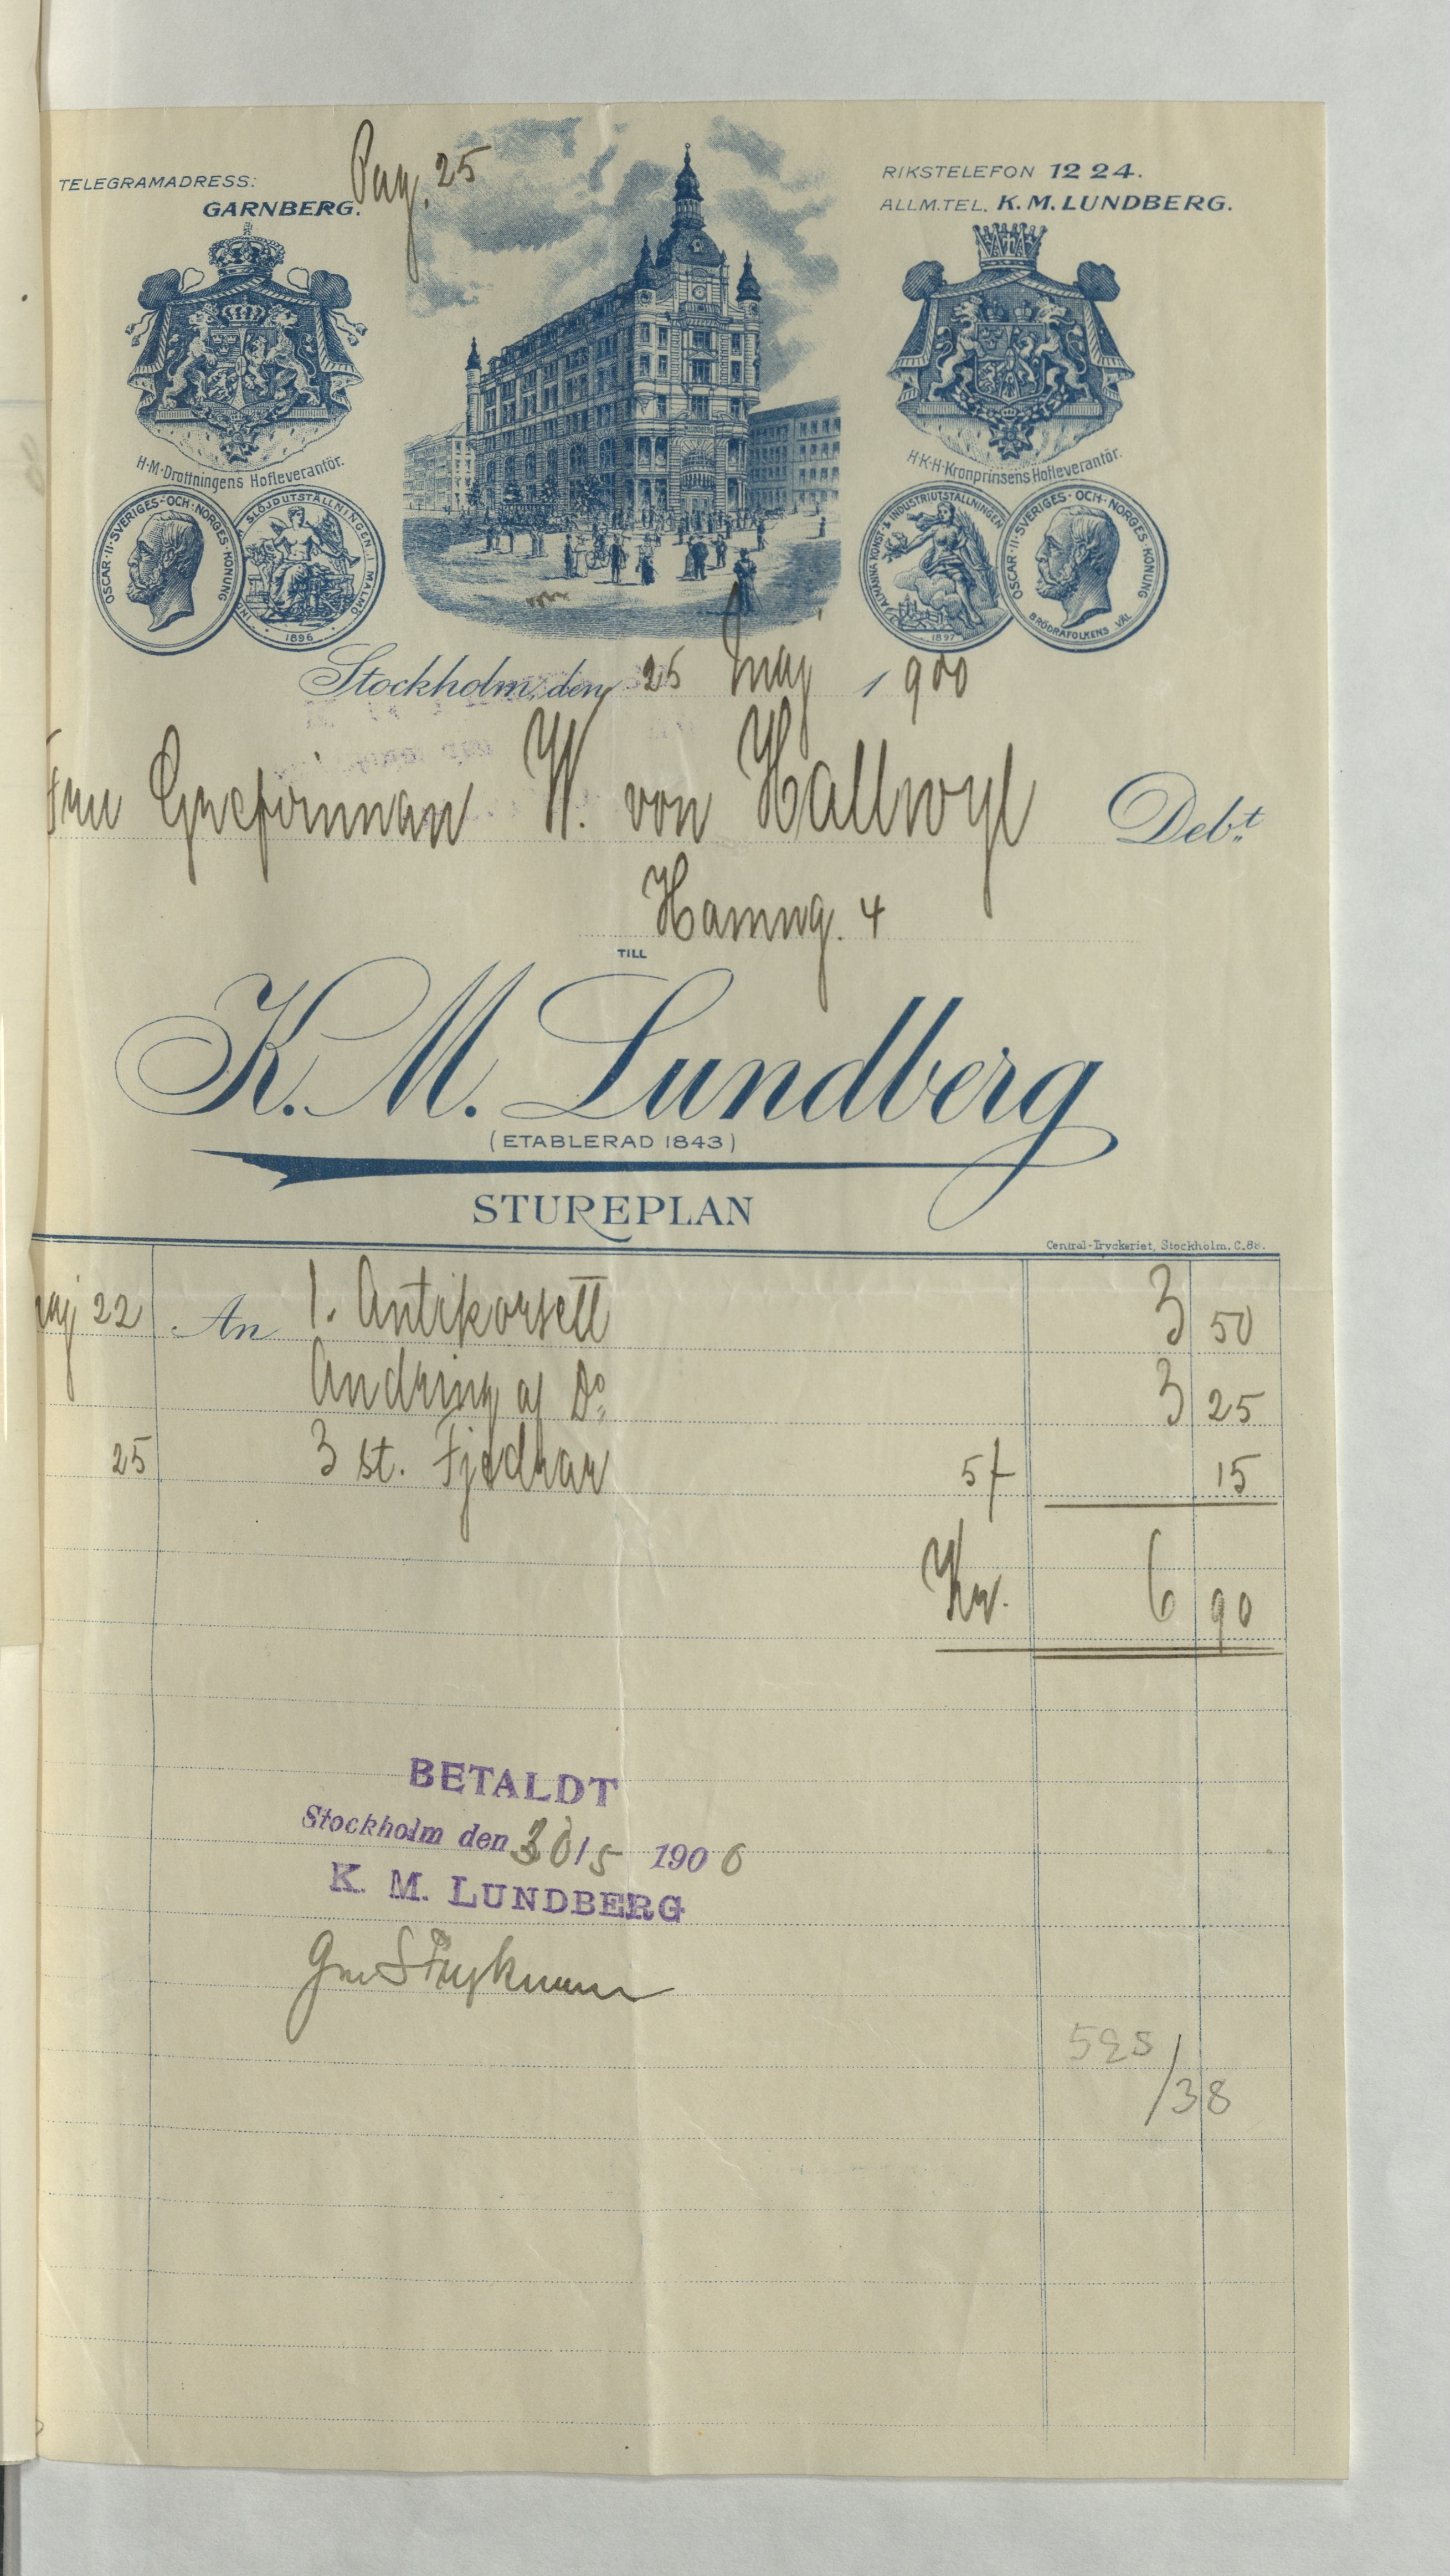 Pag. 25
TELEGRAMADRESS:
GARNBERG.
RIKSTELEFON 12 24.
ALLM.TEL. K. M. LUNDBERG.
H·M·Drottningens Hofleverantör.
H·K·H·Kronprinsens Hofleverantör.
OSCAR·II·SVERIGES·OCH·NORGES·KONUNG
SLÖJDUTSTÄLLNINGEN I MALMÖ
1896
ALLMÄNNA KONST- & INDUSTRIUTSTÄLLNINGEN
1897
OSCAR·II·SVERIGES·OCH·NORGES·KONUNG
BRÖDRAFOLKENS VÄL
Stockholm, den 25 Maj 1900
Fru Grefvinnan W. von Hallwyl Debt
Hamng. 4
TILL
K. M. Lundberg
(ETABLERAD 1843)
STUREPLAN
Central-Tryckeriet, Stockholm. C.88.
aj 22 An 1. Antikorsett 3 50
Andring af Do 3 25
25 3 st. Fjedrar 5f 15
Kr. 6 90
BETALDT
Stockholm den 30/5 1900
K. M. LUNDBERG
525
/38